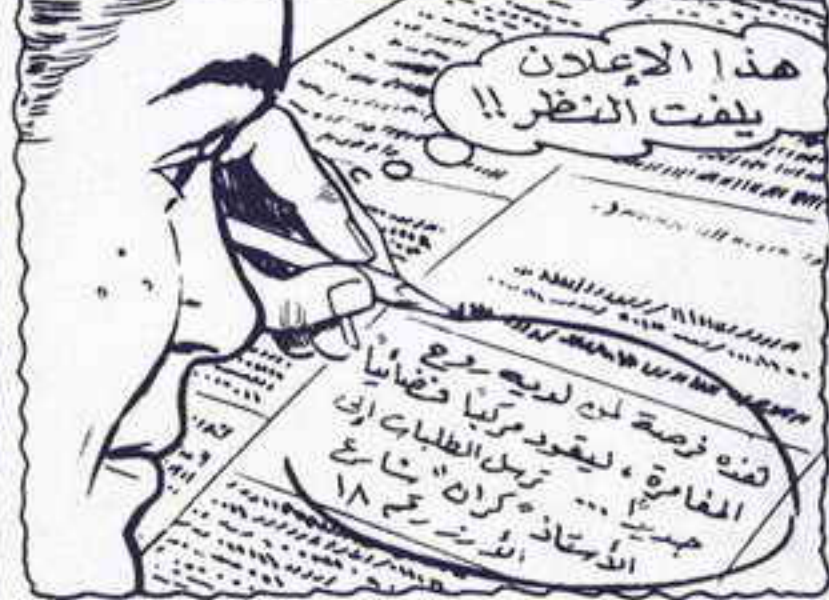 هذا الإعلان
يلفت النظر !!
هذه فرصة لمن لديه روح
المغامرة ، ليقود مركباً فضائياً
جديداً ... ترسل الطلبات إلى
الأستاذ "كران" شارع
الأرز رقم ١٨